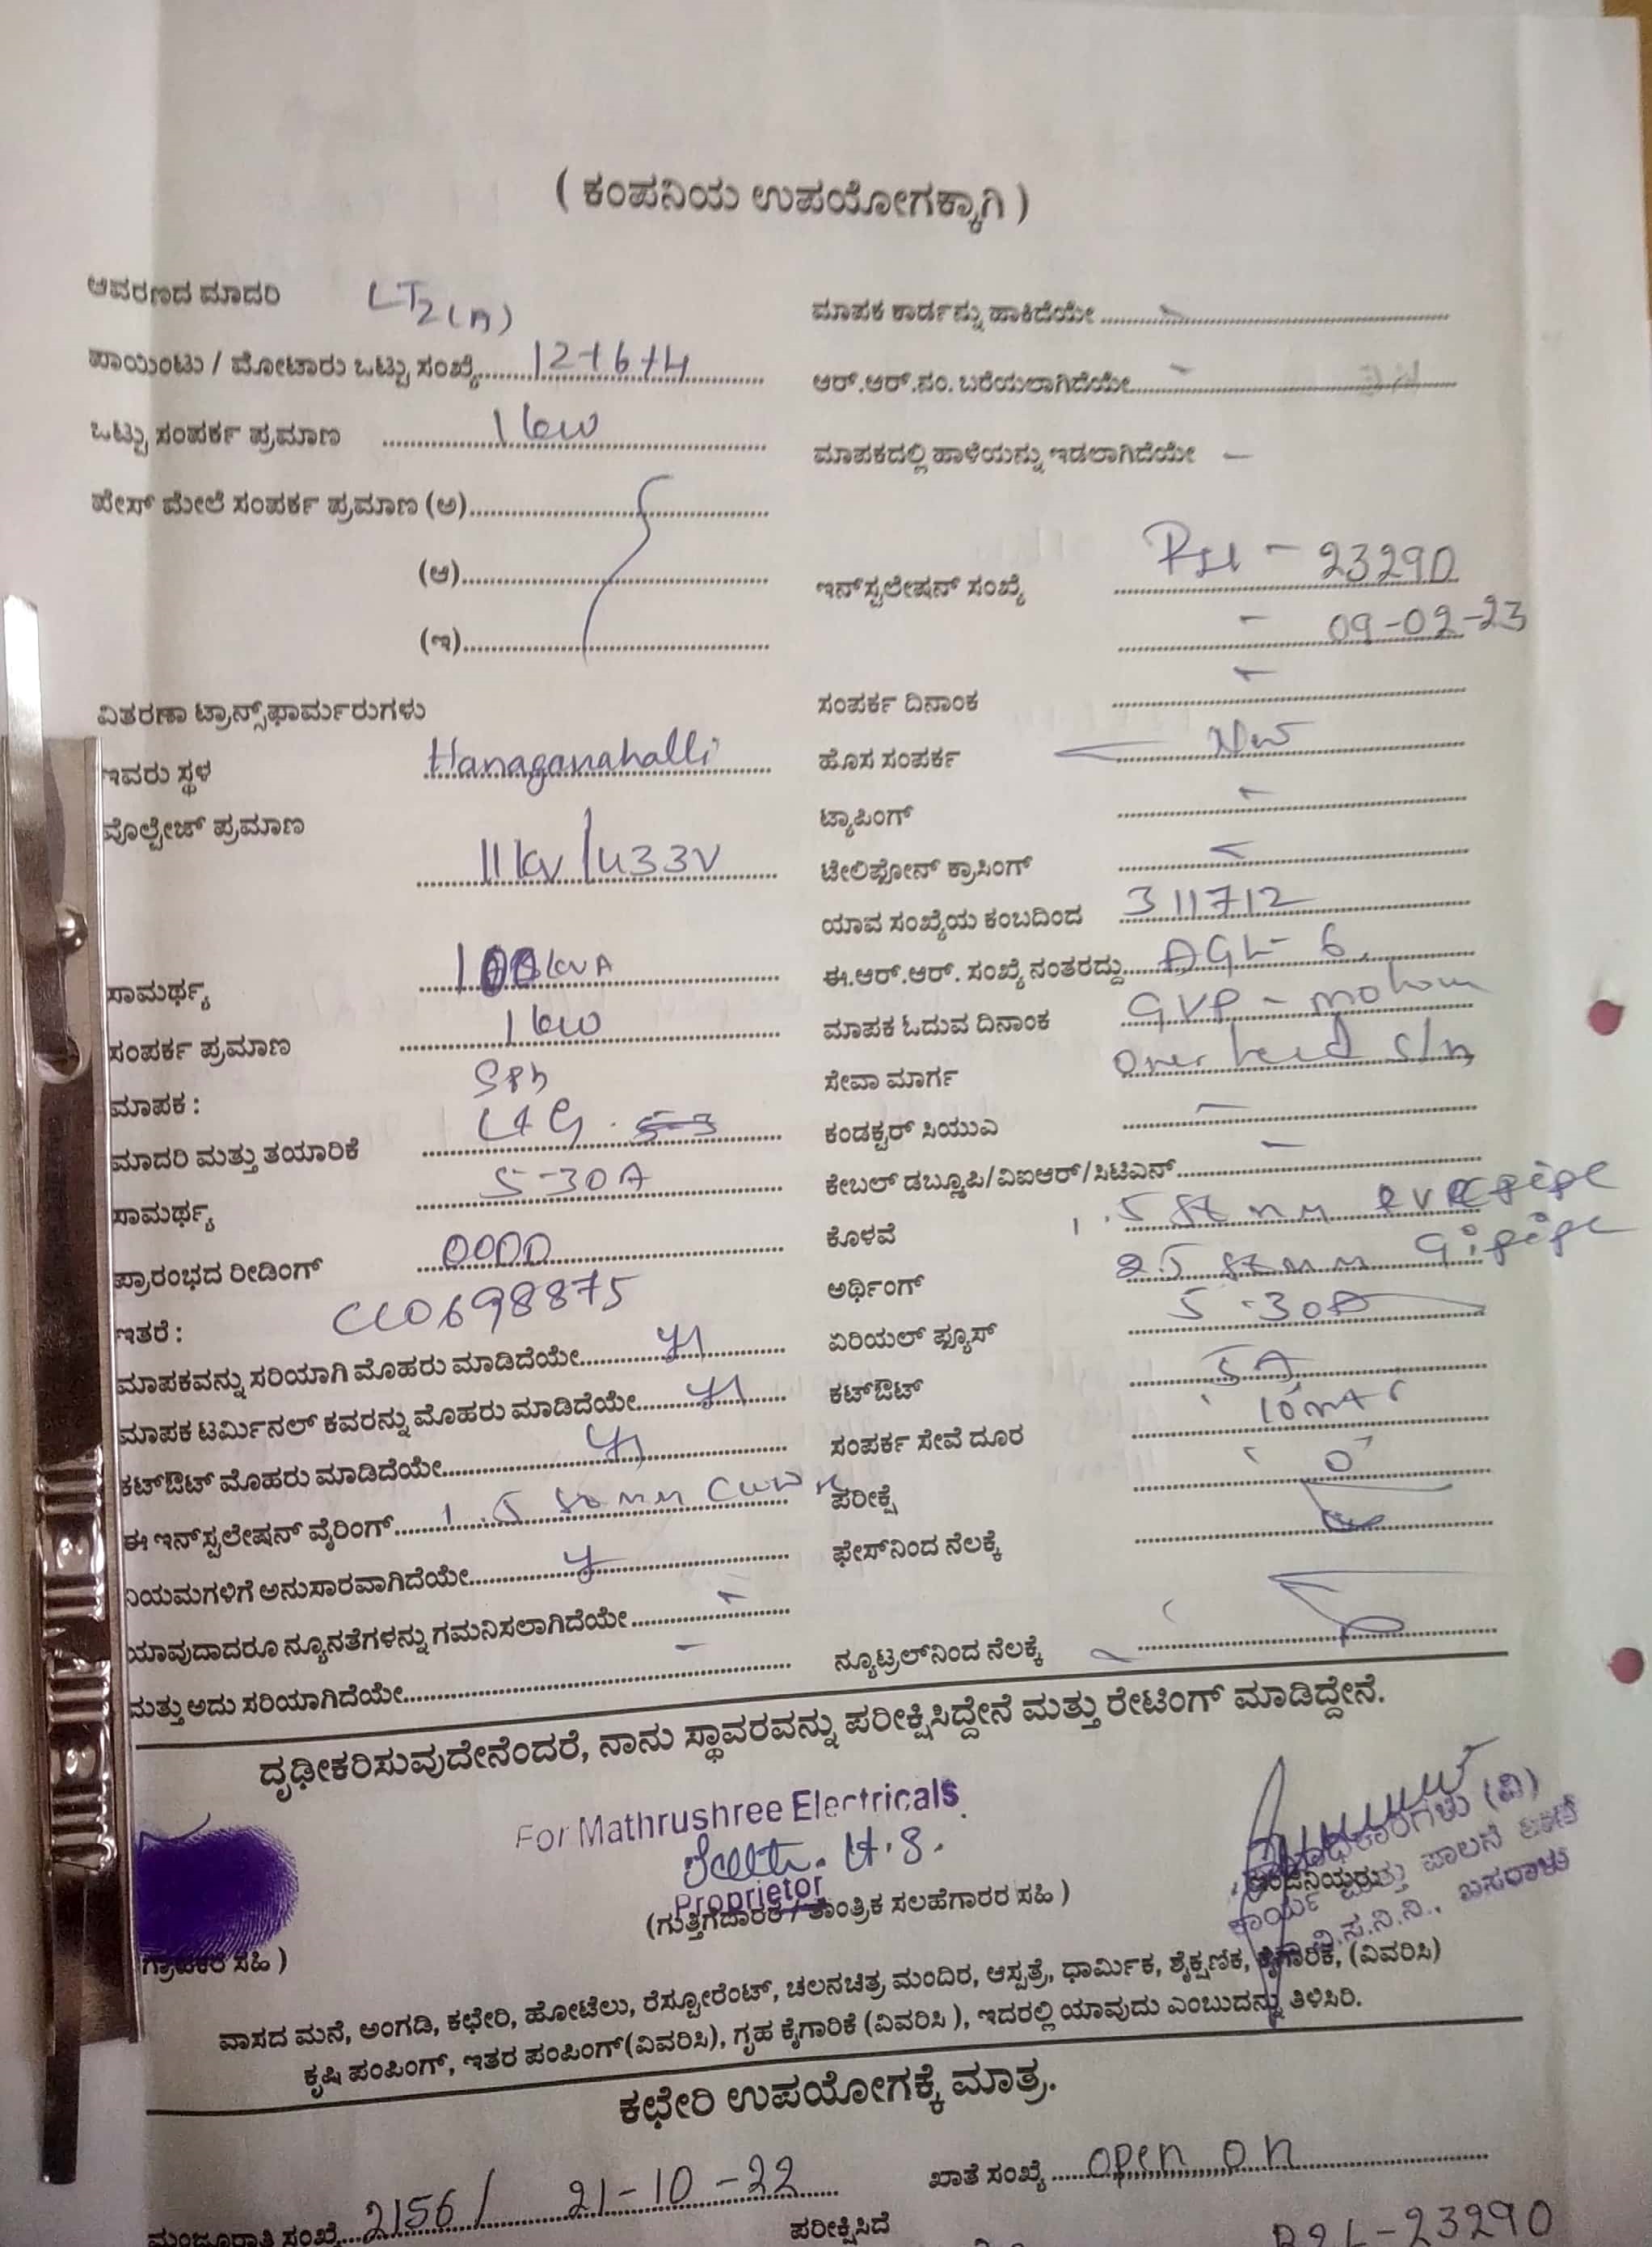 ( ಕಂಪನಿಯ ಉಪಯೋಗಕ್ಕಾಗಿ )
ಆವರಣದ ಮಾದರಿ LT2(A)
ಪಾಯಿಂಟು / ಮೋಟಾರು ಒಟ್ಟು ಸಂಖ್ಯೆ 12+6+4
ಒಟ್ಟು ಸಂಪರ್ಕ ಪ್ರಮಾಣ 1kw
ಪೇಸ್ ಮೇಲೆ ಸಂಪರ್ಕ ಪ್ರಮಾಣ (ಅ)
(ಆ)
(ಇ)
ವಿತರಣಾ ಟ್ರಾನ್ಸ್‌ಫಾರ್ಮರುಗಳು
ಇವರು ಸ್ಥಳ Hanaganahalli
ವೊಲ್ಟೇಜ್ ಪ್ರಮಾಣ
11kv/433V
ಸಾಮರ್ಥ್ಯ 100kVA
ಸಂಪರ್ಕ ಪ್ರಮಾಣ 1kw
ಮಾಪಕ : SPh
ಮಾದರಿ ಮತ್ತು ತಯಾರಿಕೆ L&G
ಸಾಮರ್ಥ್ಯ 5-30A
ಪ್ರಾರಂಭದ ರೀಡಿಂಗ್ 0000
ಇತರೆ : CC0698875
ಮಾಪಕವನ್ನು ಸರಿಯಾಗಿ ಮೊಹರು ಮಾಡಿದೆಯೇ
ಮಾಪಕ ಟರ್ಮಿನಲ್ ಕವರನ್ನು ಮೊಹರು ಮಾಡಿದೆಯೇ
ಕಟ್‌ಔಟ್ ಮೊಹರು ಮಾಡಿದೆಯೇ
ಈ ಇನ್‌ಸ್ಟಲೇಷನ್ ವೈರಿಂಗ್ 1.5
ನಿಯಮಗಳಿಗೆ ಅನುಸಾರವಾಗಿದೆಯೇ
ಯಾವುದಾದರೂ ನ್ಯೂನತೆಗಳನ್ನು ಗಮನಿಸಲಾಗಿದೆಯೇ -
ಮತ್ತು ಅದು ಸರಿಯಾಗಿದೆಯೇ -
ಮಾಪಕ ಕಾರ್ಡನ್ನು ಹಾಕಿದೆಯೇ -
ಆರ್.ಆರ್.ನಂ. ಬರೆಯಲಾಗಿದೆಯೇ -
ಮಾಪಕದಲ್ಲಿ ಹಾಳೆಯನ್ನು ಇಡಲಾಗಿದೆಯೇ -
ಇನ್‌ಸ್ಟಲೇಷನ್ ಸಂಖ್ಯೆ - 23290
- 09-02-23
ಸಂಪರ್ಕ ದಿನಾಂಕ -
ಹೊಸ ಸಂಪರ್ಕ New
ಟ್ಯಾಪಿಂಗ್ -
ಟೇಲಿಫೋನ್ ಕ್ರಾಸಿಂಗ್ -
ಯಾವ ಸಂಖ್ಯೆಯ ಕಂಬದಿಂದ 311712
ಈ.ಆರ್.ಆರ್. ಸಂಖ್ಯೆ ನಂತರದ್ದು AGL- 6
ಮಾಪಕ ಓದುವ ದಿನಾಂಕ GVP -
ಸೇವಾ ಮಾರ್ಗ over head
ಕಂಡಕ್ಟರ್ ಸಿಯುಎ -
ಕೇಬಲ್ ಡಬ್ಲೂಪಿ/ವಿಐಆರ್/ಸಿಟಿಎನ್ -
ಕೊಳವೆ 1.5 pipe
ಅರ್ಥಿಂಗ್ 25 Gi pipe
ಏರಿಯಲ್ ಫ್ಯೂಸ್ 5-30A
ಕಟ್‌ಔಟ್ 5A
ಸಂಪರ್ಕ ಸೇವೆ ದೂರ 10
ಪರೀಕ್ಷೆ
ಫೇಸ್‌ನಿಂದ ನೆಲಕ್ಕೆ
ನ್ಯೂಟ್ರಲ್‌ನಿಂದ ನೆಲಕ್ಕೆ
ದೃಢೀಕರಿಸುವುದೇನೆಂದರೆ, ನಾನು ಸ್ಥಾವರವನ್ನು ಪರೀಕ್ಷಿಸಿದ್ದೇನೆ ಮತ್ತು ರೇಟಿಂಗ್ ಮಾಡಿದ್ದೇನೆ.
For Mathrushree Electricals
H.S.
Proprietor
(ಗುತ್ತಿಗೆದಾರರ / ತಾಂತ್ರಿಕ ಸಲಹೆಗಾರರ ಸಹಿ )
ಗ್ರಾಹಕರ ಸಹಿ )
ವಾಸದ ಮನೆ, ಅಂಗಡಿ, ಕಛೇರಿ, ಹೋಟೆಲು, ರೆಸ್ಟೋರೆಂಟ್, ಚಲನಚಿತ್ರ ಮಂದಿರ, ಆಸ್ಪತ್ರೆ, ಧಾರ್ಮಿಕ, ಶೈಕ್ಷಣಿಕ, ಕೈಗಾರಿಕೆ, (ವಿವರಿಸಿ)
ಕೃಷಿ ಪಂಪಿಂಗ್, ಇತರ ಪಂಪಿಂಗ್(ವಿವರಿಸಿ), ಗೃಹ ಕೈಗಾರಿಕೆ (ವಿವರಿಸಿ ), ಇದರಲ್ಲಿ ಯಾವುದು ಎಂಬುದನ್ನು ತಿಳಿಸಿರಿ.
ಕಛೇರಿ ಉಪಯೋಗಕ್ಕೆ ಮಾತ್ರ.
ಮಂಜೂರಾತಿ ಸಂಖ್ಯೆ 2156/ 21-10-22
ಖಾತೆ ಸಂಖ್ಯೆ open on
ಪರೀಕ್ಷಿಸಿದೆ -23290